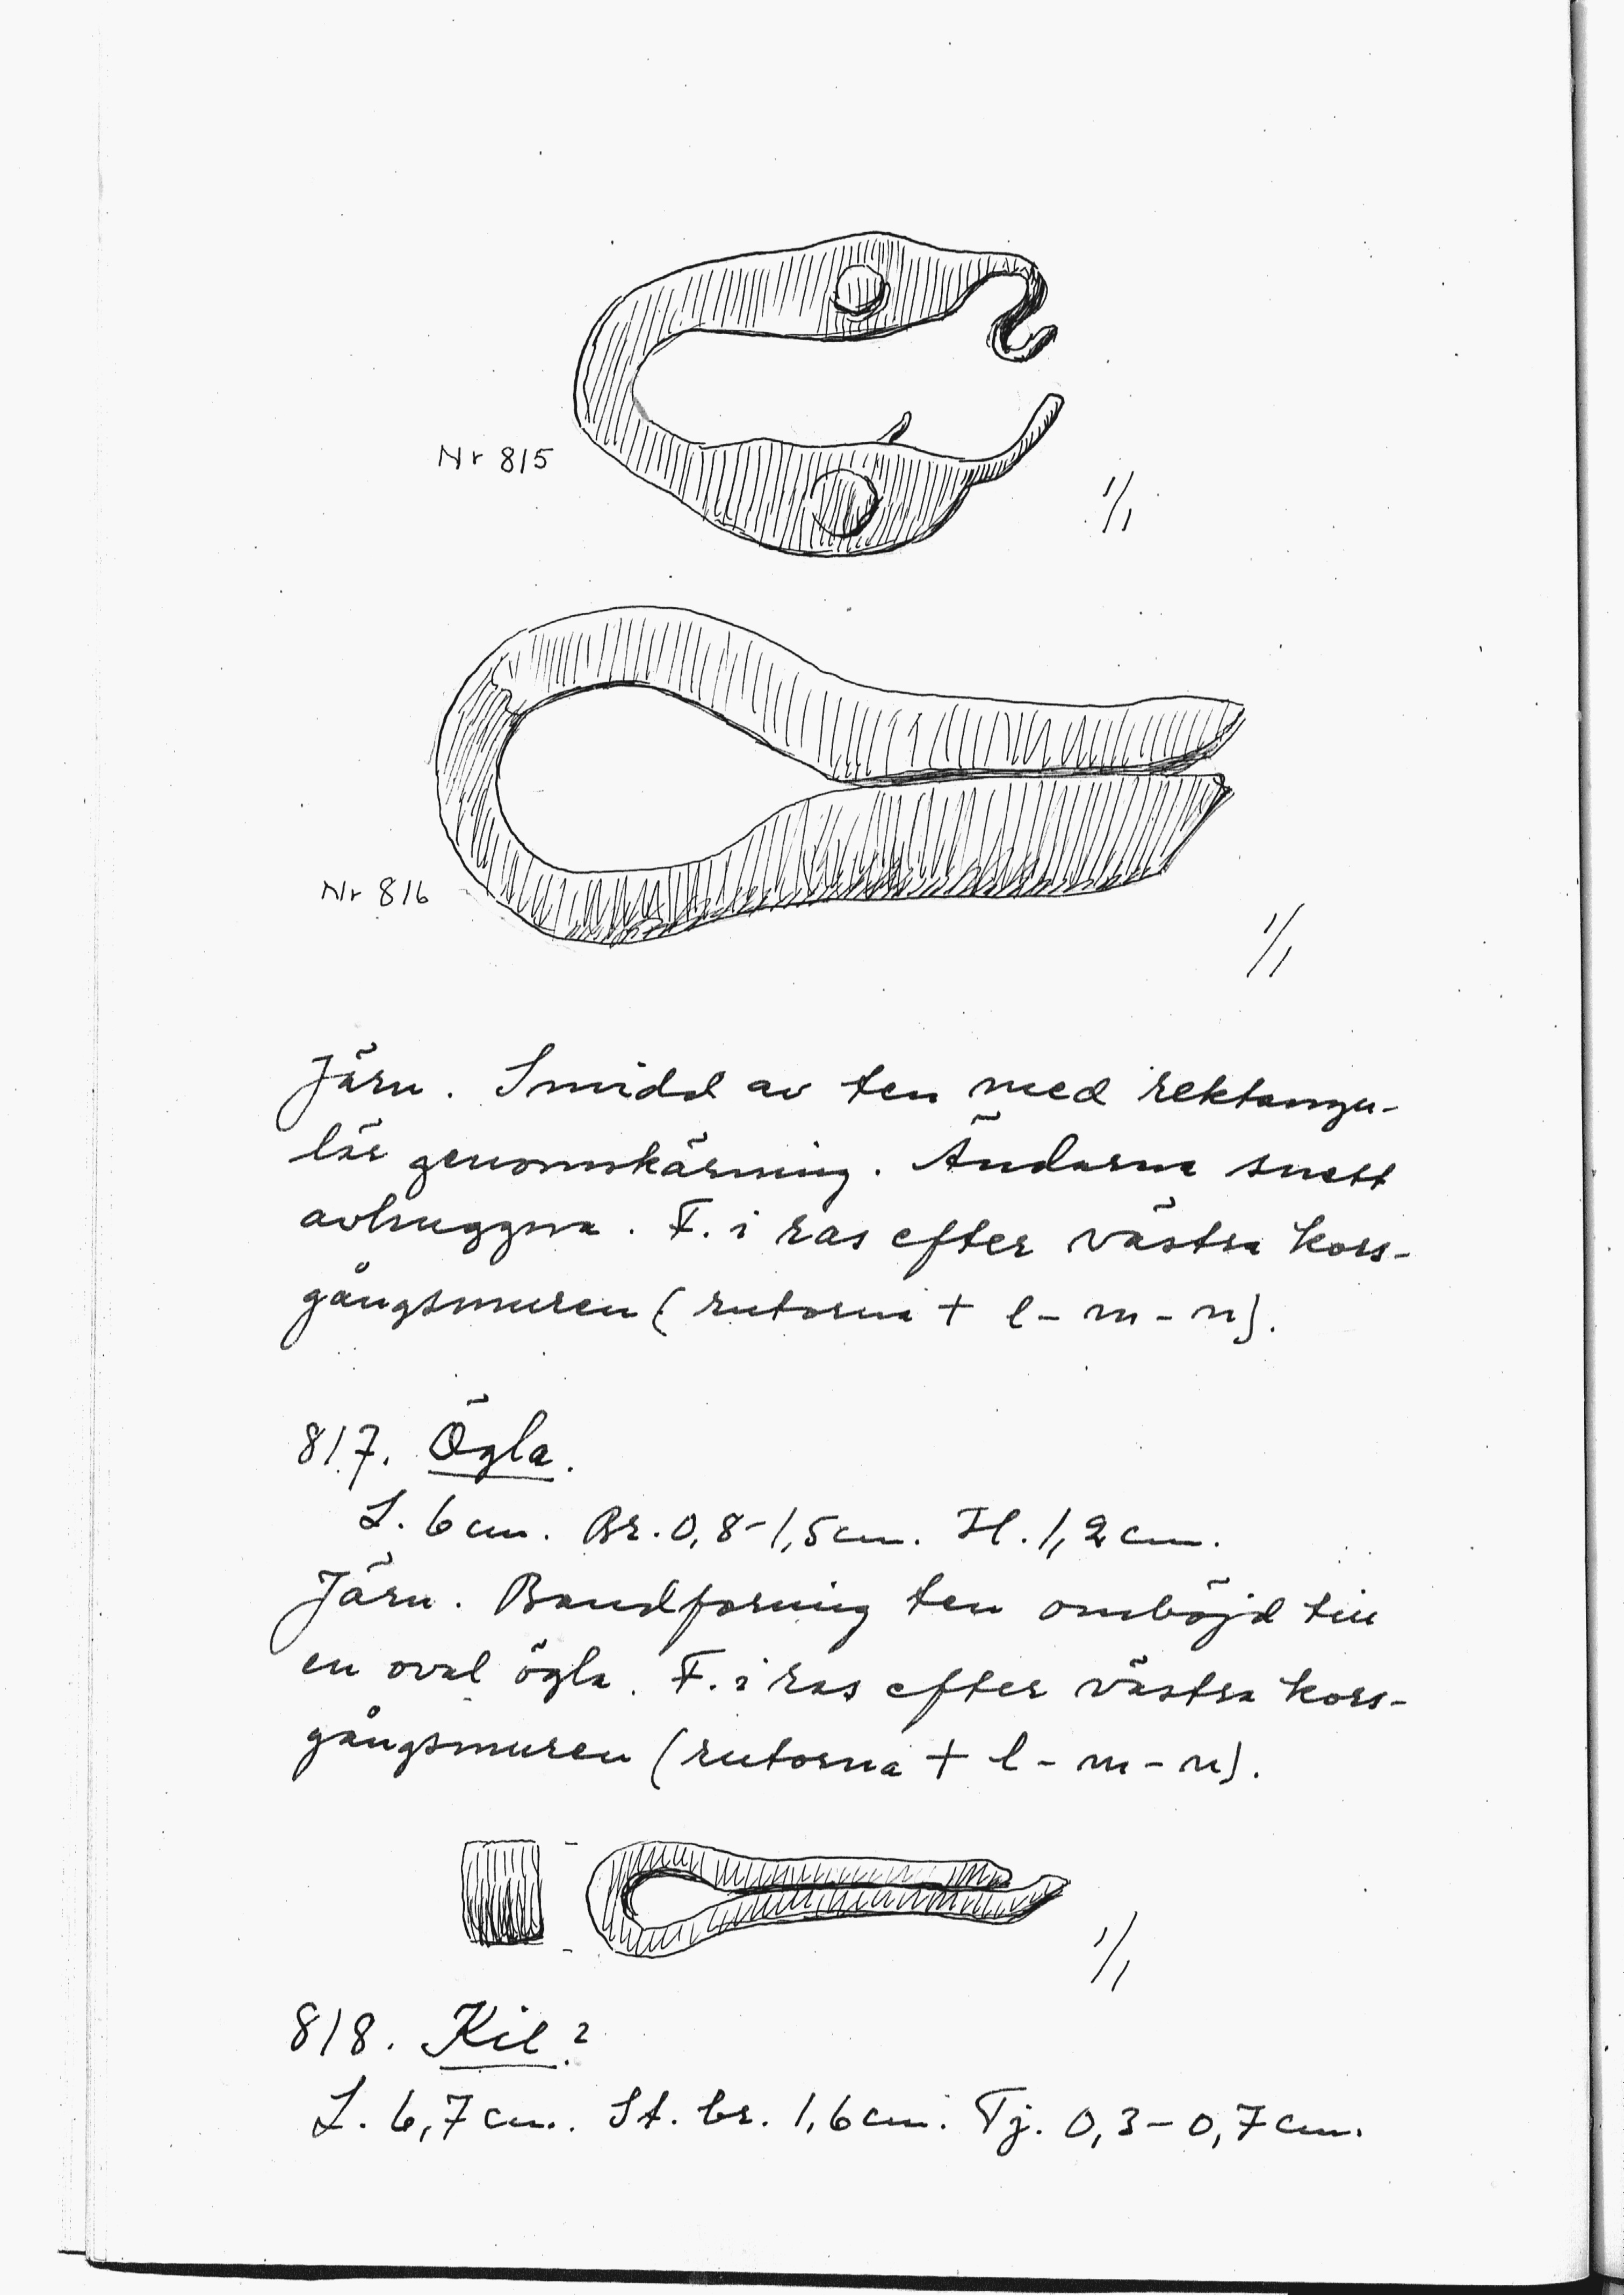 Nr 815
1/1
Nr 816
1/1
Järn. Smidd av ten med rektangu-
lär genomskärning. Ändarna snett
avhuggna. F. i ras efter västra kors-
gångsmuren (rutorna + l - m - n).
817. Ögla.
L. 6 cm. Br. 0,8-1,5 cm. H. 1,2 cm.
Järn. Bandformig ten omböjd till
en oval ögla. F. i ras efter västra kors-
gångsmuren (rutorna + l - m - n).
1/1
818. Kil?
L. 6,7 cm. St. br. 1,6 cm. Tj. 0,3-0,7 cm.